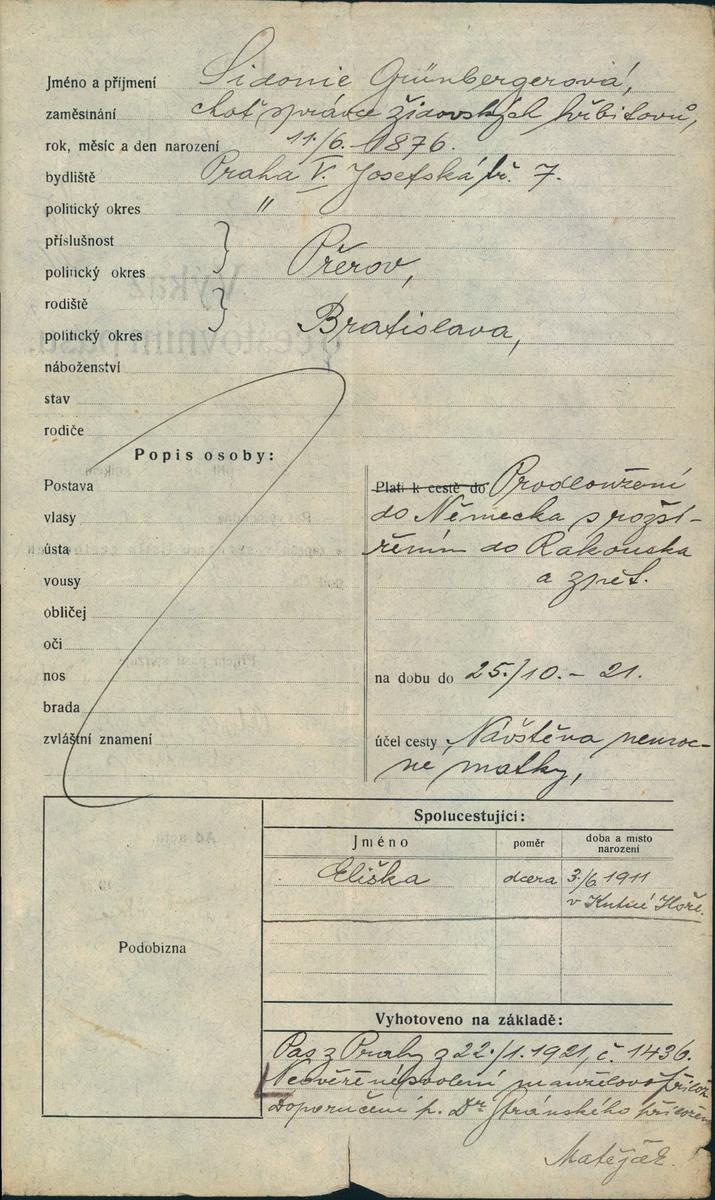 Jméno a příjmení Sidonie Grünbergerová,
zaměstnání choť správce židovských hřbitovů,
rok, měsíc a den narození 11./6. 1876.
bydliště Praha V. Josefská tř. 7.
politický okres "
příslušnost
politický okres Přerov,
rodiště
politický okres Bratislava,
náboženství
stav
rodiče
Popis osoby:
Postava
vlasy
ústa
vousy
obličej
oči
nos
brada
zvláštní znamení
Platí k cestě do Prodloužení
do Německa s rozší-
řením do Rakouska
a zpět.
na dobu do 25./10. - 21.
účel cesty Návštěva nemoc-
né matky,
Podobizna
Spolucestující:
Jméno poměr doba a místo narození
Eliška dcera 3./6. 1911
v Kutné Hoře.
Vyhotoveno na základě:
Pas z Prahy z 22./1. 1921, č. 1436.
manželovo
Doporučení p. Dr Stránského
Matějček.